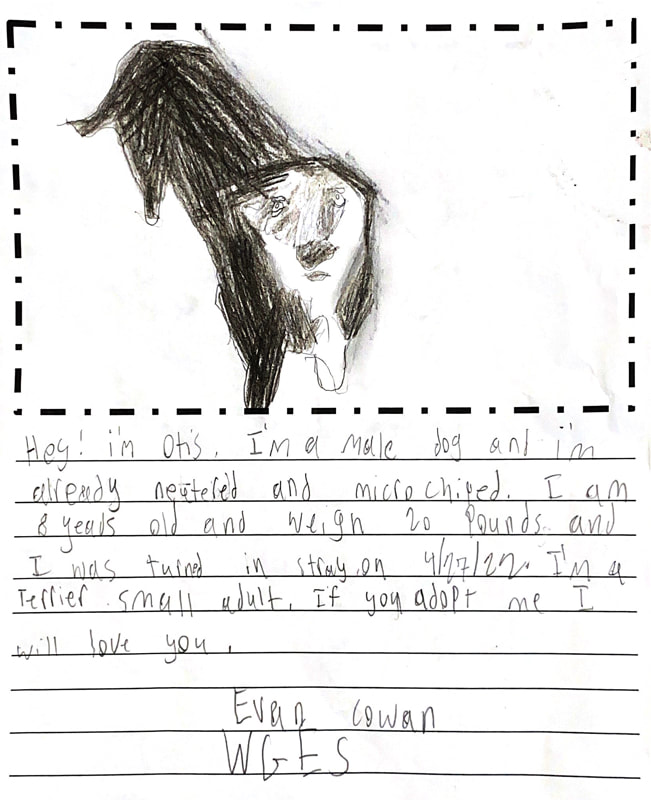 Hey! i'm Otis. I'm a male dog and i'm
already neutered and microchiped. I am
8 years old and weign 20 Pounds and
I was turnd in stray on 4/27/22. I'm a
Terrier small adult. If you adopt me I
will love you.
Evan Cowan
WGES